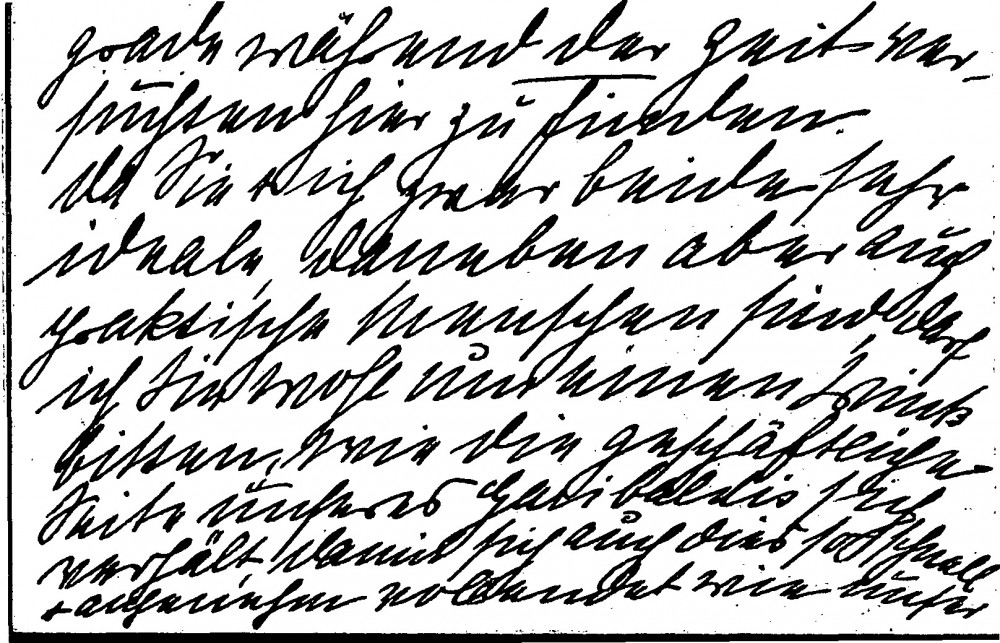 grade während der Zeit ver-
suchten hier zu finden.
Da Sie + ich zwar beide sehr
ideale, daneben aber auch
praktische Menschen sind darf
ich Sie wohl um einen Wink
bitten, wie die geschäftliche
Seite unseres Garibaldis sich
verhält, damit sich auch dies so schnell
+ angenehm vollendet wie unser